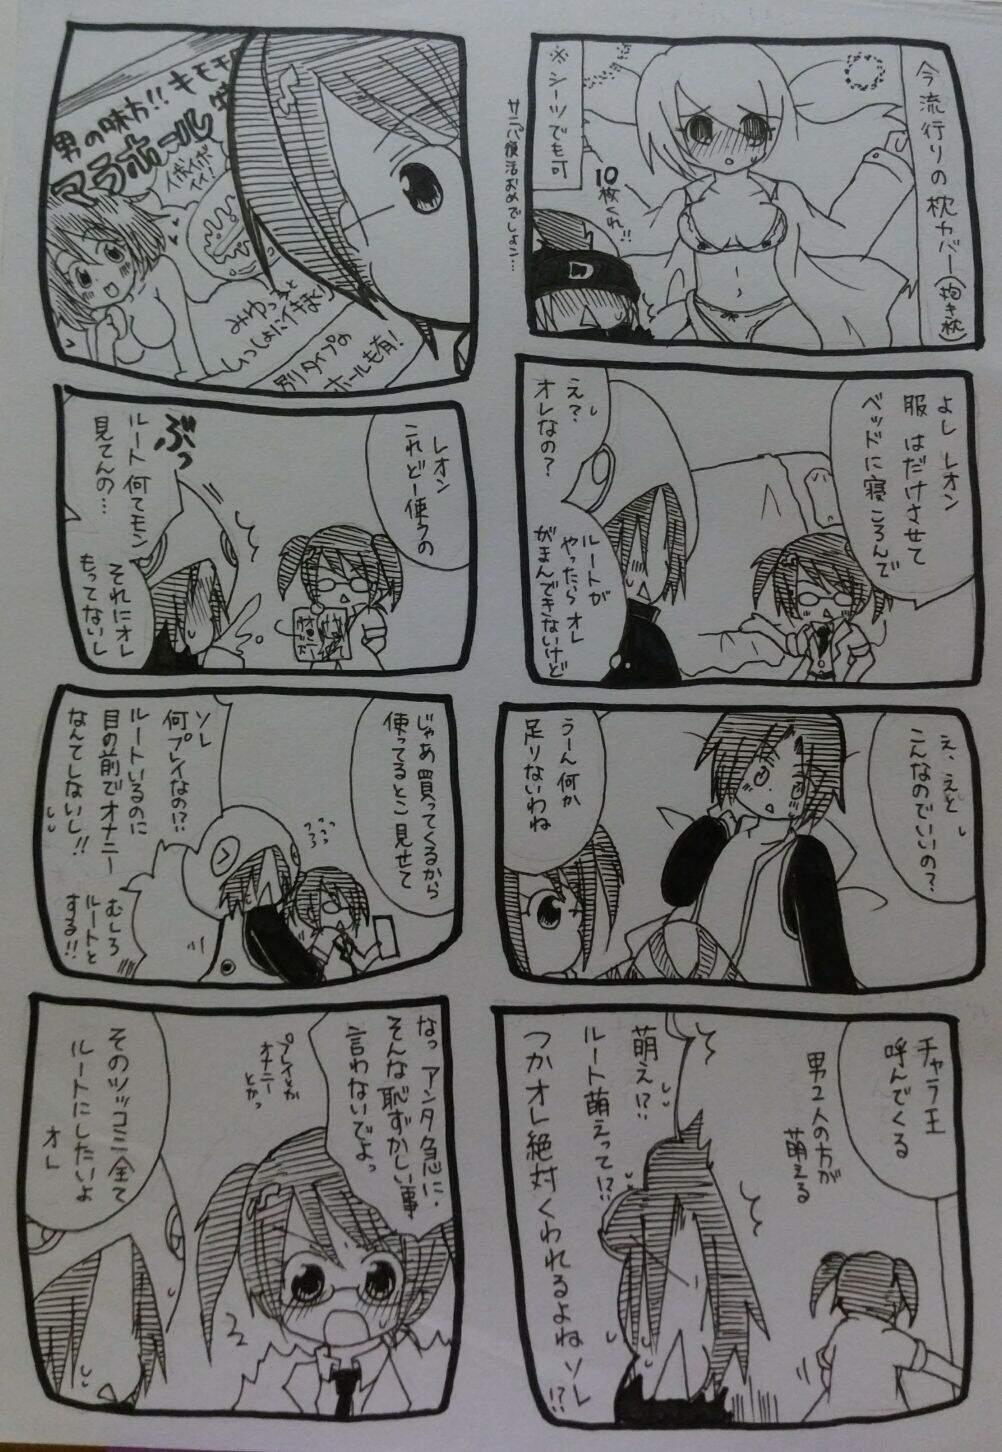 今流行りの枕カバー(抱き枕)
※シーツでも可
10枚くれ!!
サニパ復活おめでしょん…
よし レオン
服 はだけさせて
ベッドに寝ころんで
え?
オレなの?
ルートが
やったら オレ
がまんできないけど
え、えと
こんなのでいいの?
うーん何か
足りないわね
チャラ王
呼んでくる
男2人の方が
萌える
萌え!?
ルート萌えって!?
つかオレ絶対くわれるよねソレ!?
男の味方!!キモモ
マラホール
イボイボ
イイ!
みゆっと
いっしょにイキまく
別タイプの
ホールも有!
レオン
これどー使うの
ぶっ
ルート何てモン
見てんの…
それにオレ
もってないし
じゃあ買ってくるから
使ってるとこ見せて
ソレ
何プレイなの!?
ルートいるのに
目の前でオナニー
なんてしないし!!
むしろ
ルートと
する!!
なっ アンタ急に
そんな恥ずかしい事
言わないでよっ
プレイとか
オナニー
とかっ
そのツッコミ全て
ルートにしたいよ
オレ